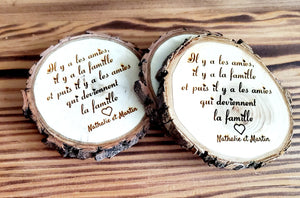 Il y a les amies,
il y a la famille
et puis il y a les amies
qui deviennent
la famille
Nathalie et Martin
Il y a les amies,
il y a la famille
et puis il y a les amies
qui deviennent
la famille
Nathalie et Martin